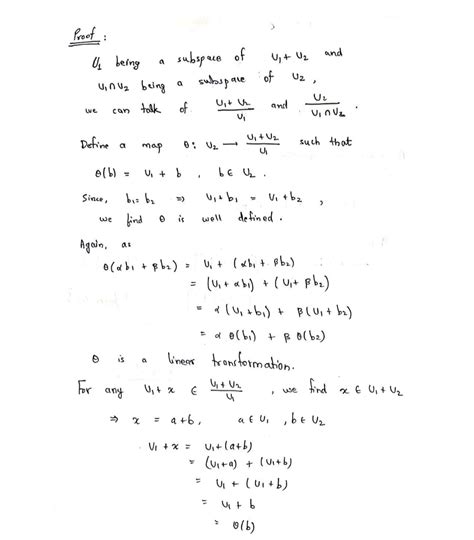 Proof :
U₁ being a subspace of U₁ + U₂ and
U₁ ∩ U₂ being a subspace of U₂ ,
we can talk of (U₁ + U₂)/U₁ and U₂/(U₁ ∩ U₂) .
Define a map θ : U₂ → (U₁ + U₂)/U₁ such that
θ(b) = U₁ + b , b ∈ U₂ .
Since, b₁ = b₂ ⇒ U₁ + b₁ = U₁ + b₂ ,
we find θ is well defined .
Again, as
θ(αb₁ + βb₂) = U₁ + (αb₁ + βb₂)
= (U₁ + αb₁) + (U₁ + βb₂)
= α (U₁ + b₁) + β (U₁ + b₂)
= α θ(b₁) + β θ(b₂)
θ is a linear transformation.
For any U₁ + x ∈ (U₁ + U₂)/U₁ , we find x ∈ U₁ + U₂
⇒ x = a + b , a ∈ U₁ , b ∈ U₂
∴ U₁ + x = U₁ + (a + b)
= (U₁ + a) + (U₁ + b)
= U₁ + (U₁ + b)
= U₁ + b
= θ(b)